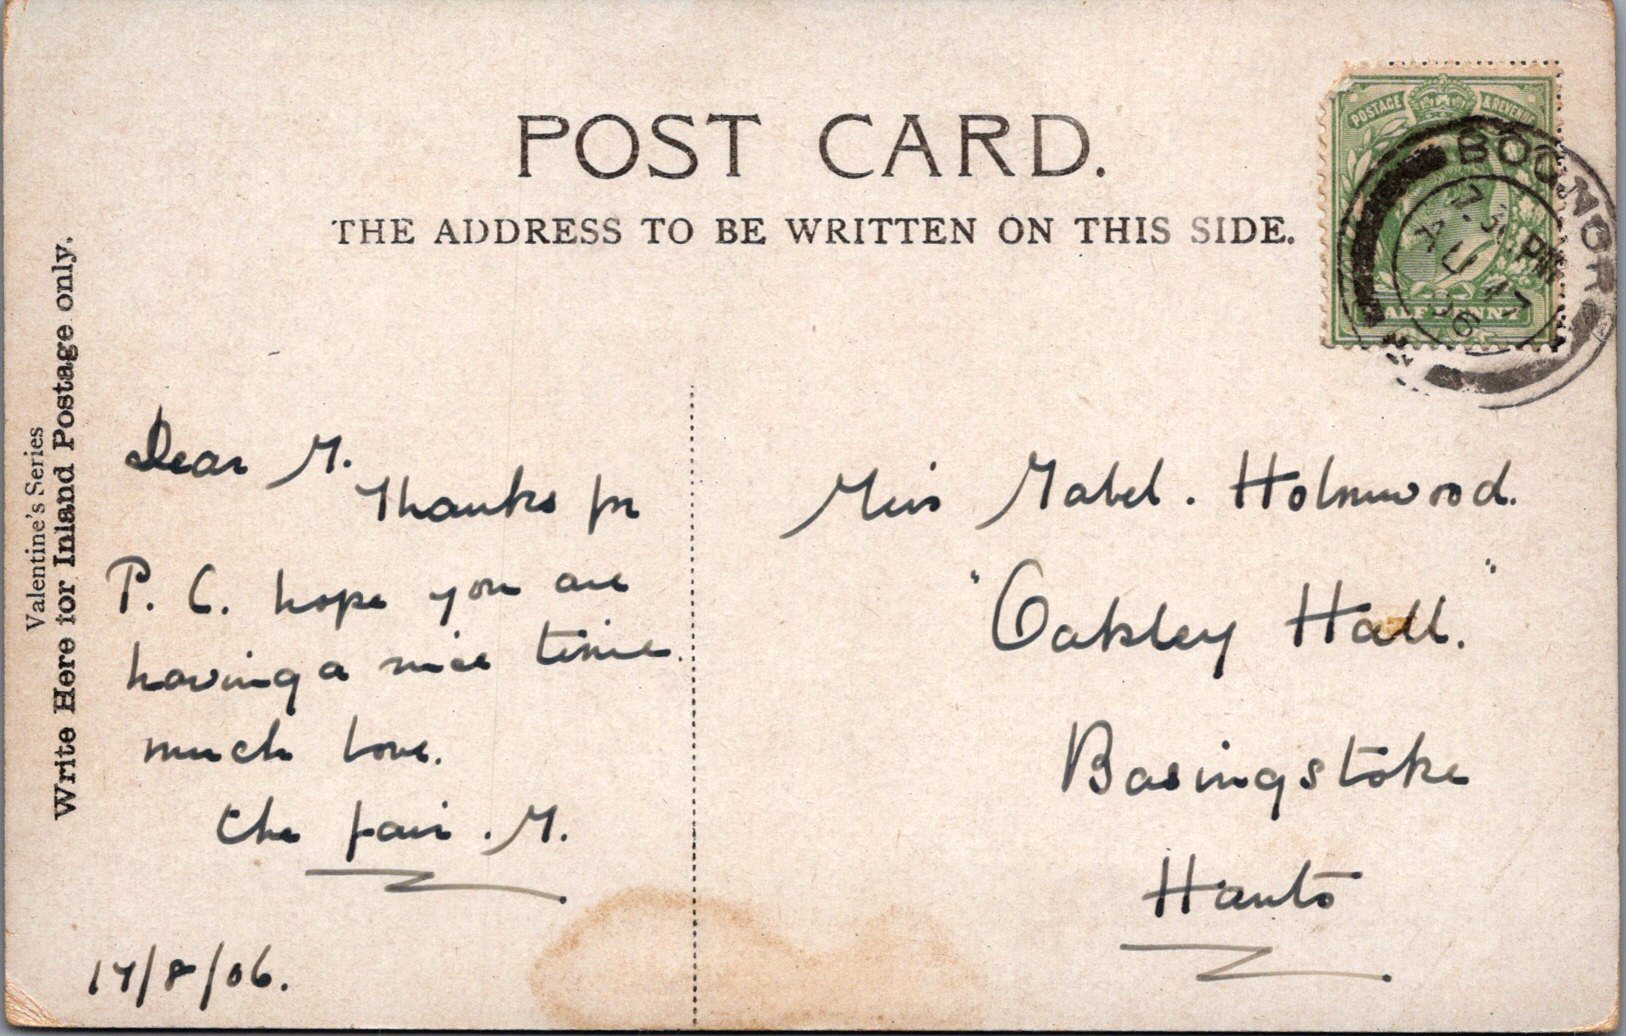 POST CARD.
THE ADDRESS TO BE WRITTEN ON THIS SIDE.
Valentine's Series
Write Here for Inland Postage only.
POSTAGE & REVENUE
HALF PENNY
BOGNOR
7.30 PM
AU 17
06
Dear M.
Thanks for
P. C. hope you are
having a nice time.
much love.
the fair . M.
17/8/06.
Miss Mabel . Holmwood.
"Oakley Hall."
Basingstoke
Hants